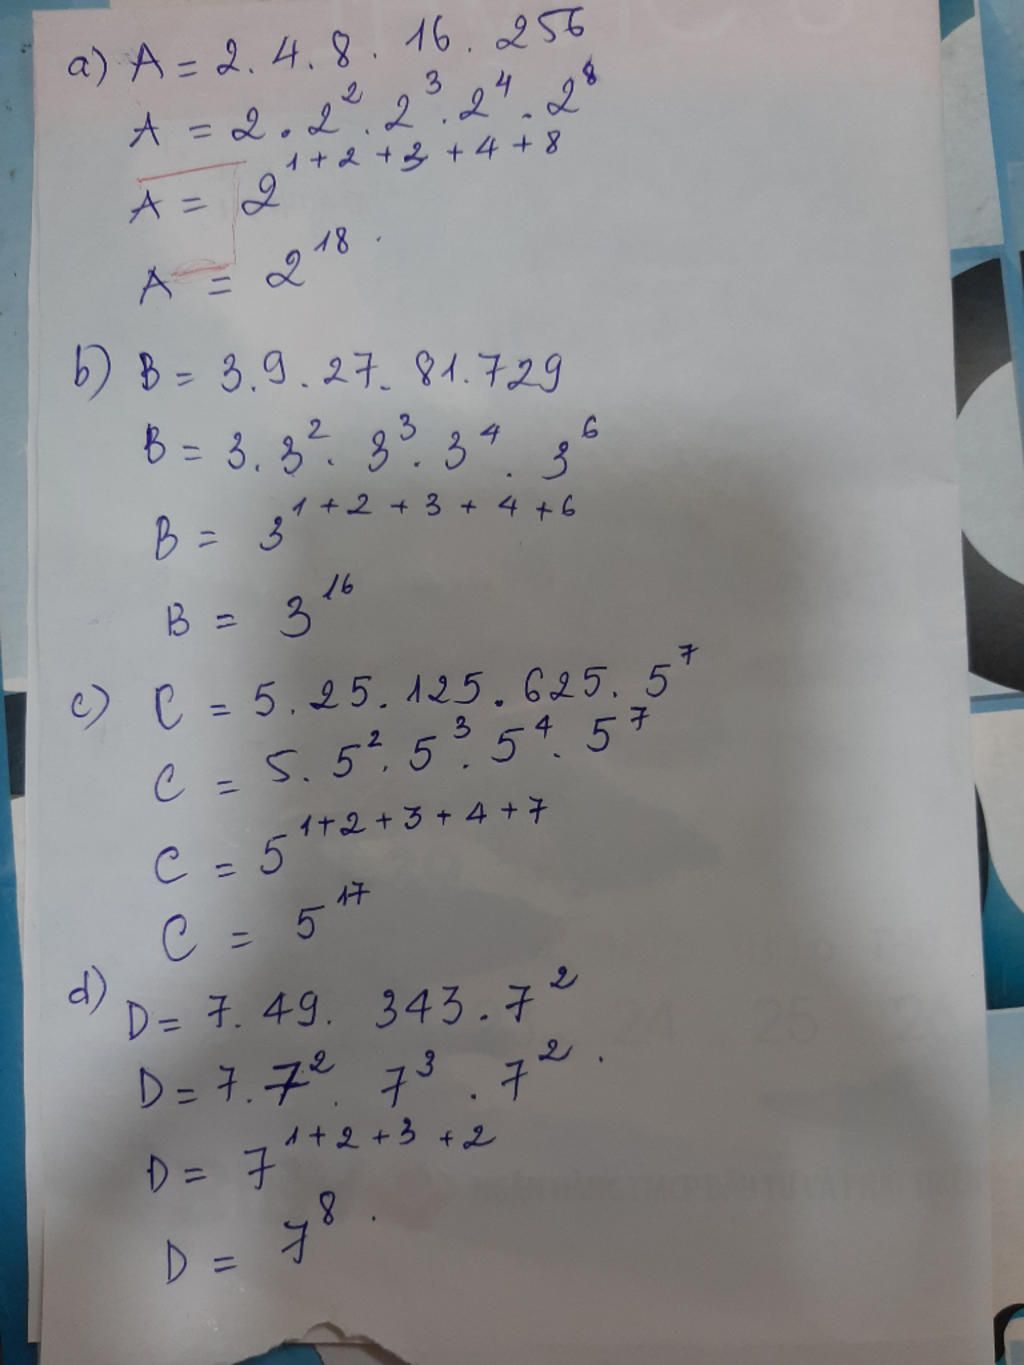 a) A = 2. 4. 8. 16. 256
A = 2 . 2² . 2³ . 2⁴ . 2⁸
A = 2¹⁺²⁺³⁺⁴⁺⁸
A = 2¹⁸.
b) B = 3.9.27.81.729
B = 3.3².3³.3⁴.3⁶
B = 3¹⁺²⁺³⁺⁴⁺⁶
B = 3¹⁶
c) C = 5.25.125.625.5⁷
C = 5.5².5³.5⁴.5⁷
C = 5¹⁺²⁺³⁺⁴⁺⁷
C = 5¹⁷
d) D = 7.49.343.7²
D = 7.7².7³.7².
D = 7¹⁺²⁺³⁺²
D = 7⁸.
24 25